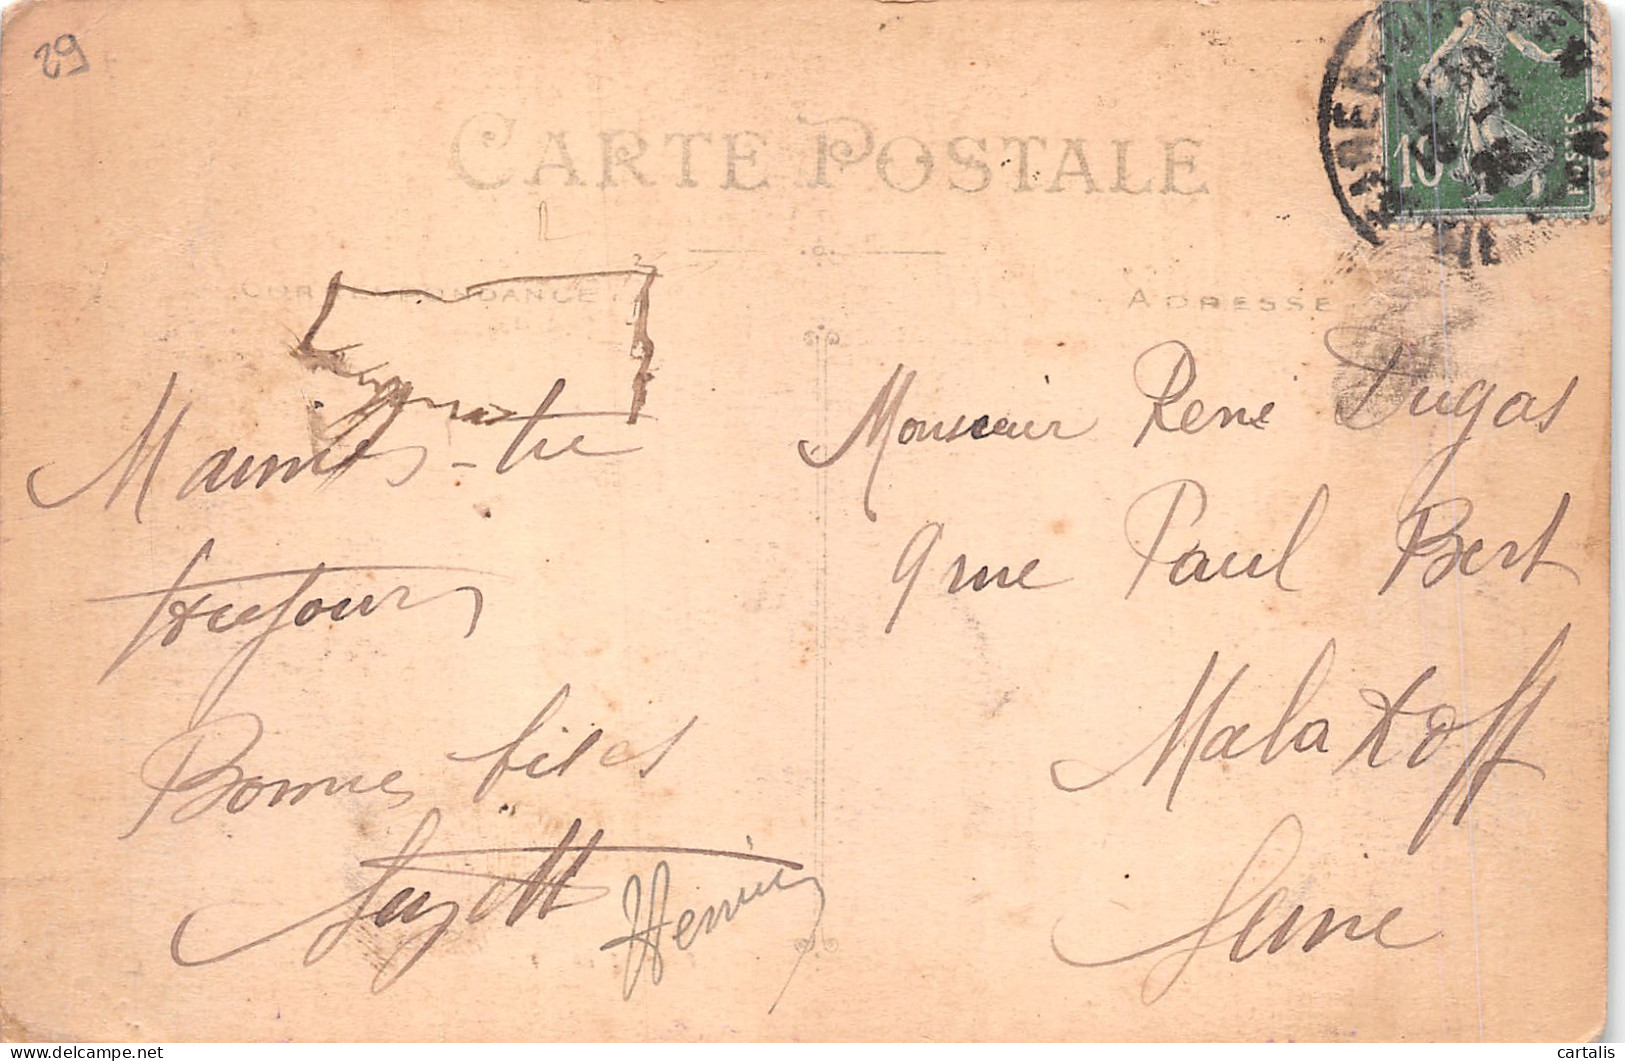 29
CARTE POSTALE
CORRESPONDANCE
ADRESSE
10
POSTES
M'aimes-tu
toujours
Bonnes bises
Suzette
Henri
Monsieur René Dugas
9 rue Paul Bert
Malakoff
Seine
cartalis